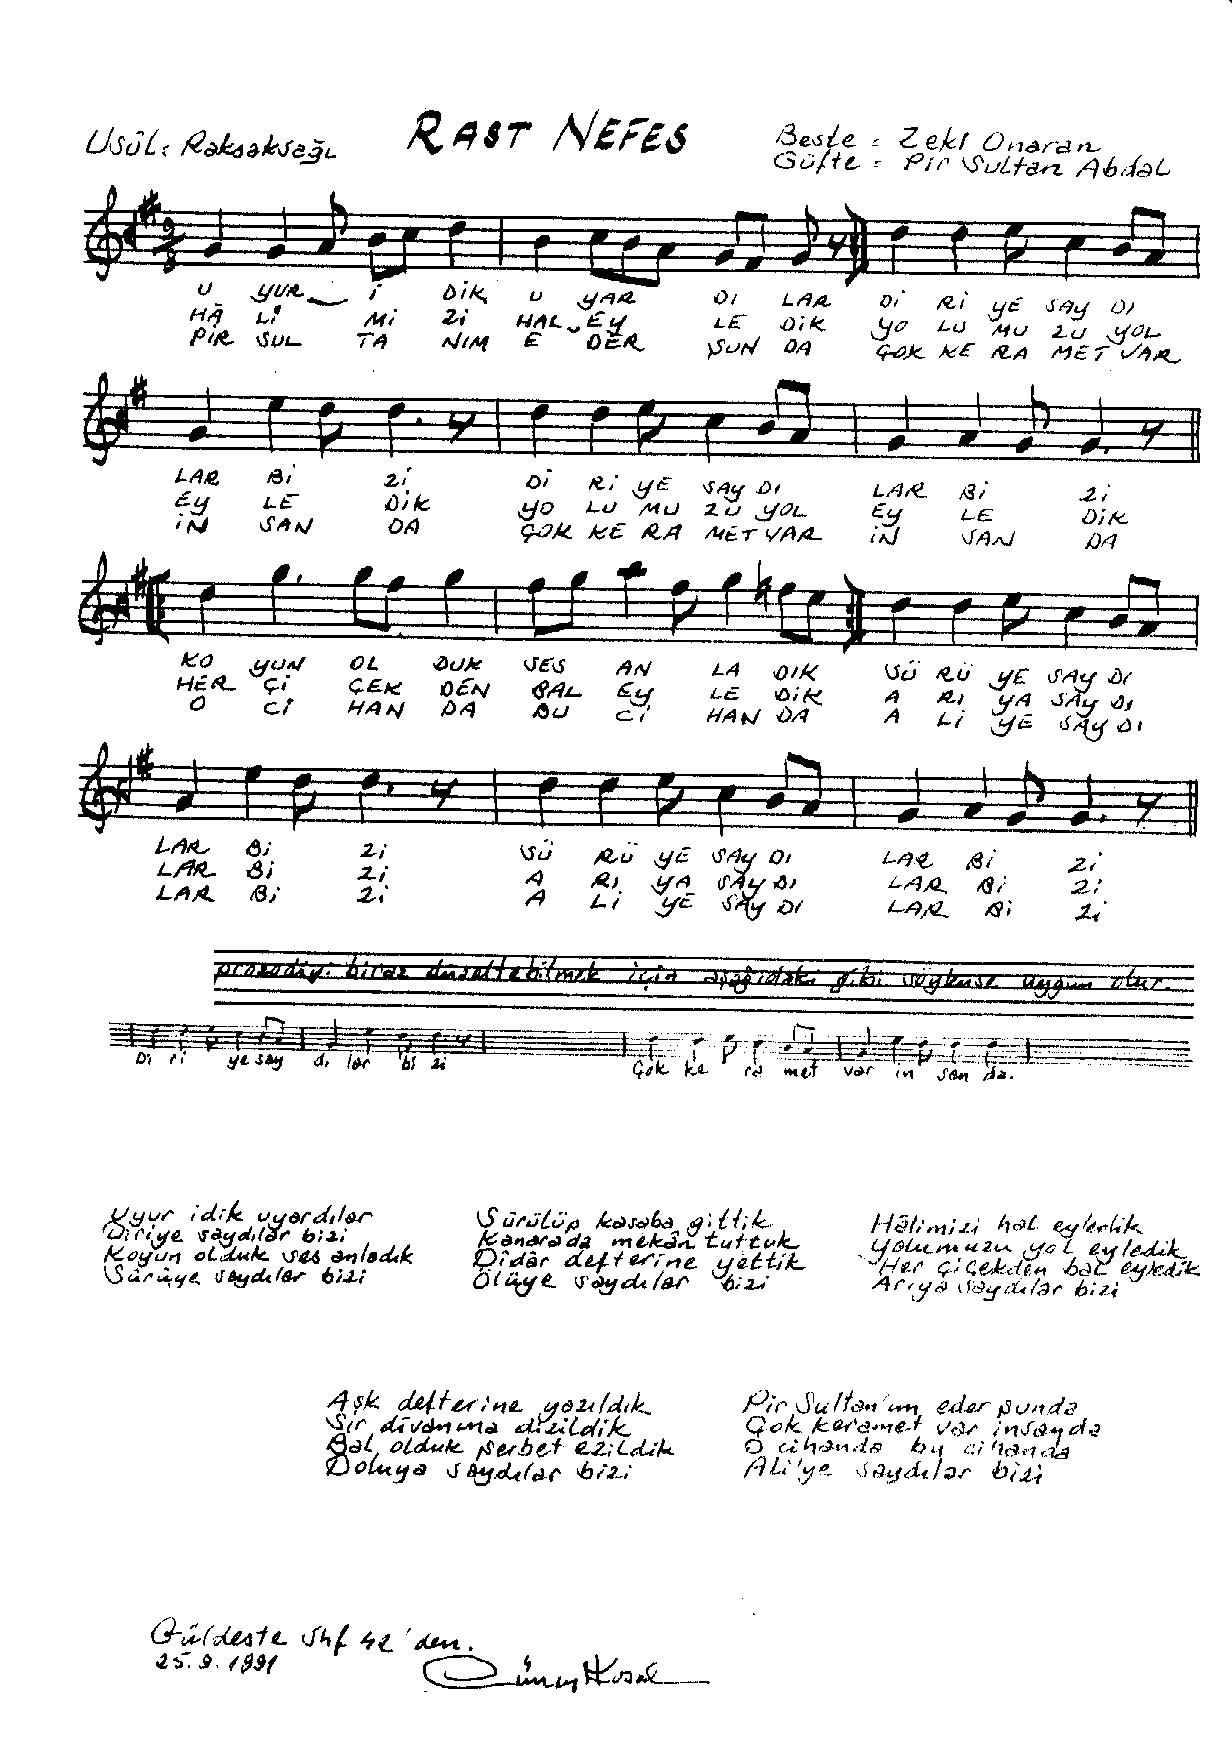 RAST NEFES
Usûl: Raksaksağı
Beste : Zeki Onaran
Güfte : Pir Sultan Abdal
9/8
U YUR İ DİK U YAR DI LAR Dİ Rİ YE SAY DI
HÂ Lİ Mİ Zİ HAL EY LE DİK YO LU MU ZU YOL
PİR SUL TA NIM E DER ŞUN DA ÇOK KE RA MET VAR
LAR Bİ Zİ Dİ Rİ YE SAY DI LAR Bİ Zİ
EY LE DİK YO LU MU ZU YOL EY LE DİK
İN SAN DA ÇOK KE RA MET VAR İN SAN DA
KO YUN OL DUK SES AN LA DIK SÜ RÜ YE SAY DI
HER Çİ ÇEK DEN BAL EY LE DİK A RI YA SAY DI
O Cİ HAN DA BU Cİ HAN DA A Lİ YE SAY DI
LAR Bİ Zİ SÜ RÜ YE SAY DI LAR Bİ Zİ
LAR Bİ Zİ A RI YA SAY DI LAR Bİ Zİ
LAR Bİ Zİ A Lİ YE SAY DI LAR Bİ Zİ
prozodiyi biraz düzeltebilmek için aşağıdaki gibi söylense uygun olur.
Di ri ye say dı lar bi zi Çok ke ra met var in san da.
Uyur idik uyardılar
Diriye saydılar bizi
Koyun olduk ses anladık
Sürüye saydılar bizi
Sürülüp kasaba gittik
Kanarada mekân tuttuk
Dîdâr defterine yettik
Ölüye saydılar bizi
Hâlimizi hal eylerdik
Yolumuzu yol eyledik
Her çiçekden bal eyledik
Arıya saydılar bizi
Aşk defterine yazıldık
Sır dîvanına dizildik
Bal olduk şerbet ezildik
Doluya saydılar bizi
Pir Sultan'ım eder şunda
Çok keramet var insayda
O cihanda bu cihanda
Ali'ye saydılar bizi
Güldeste Shf 42'den.
25.9.1991